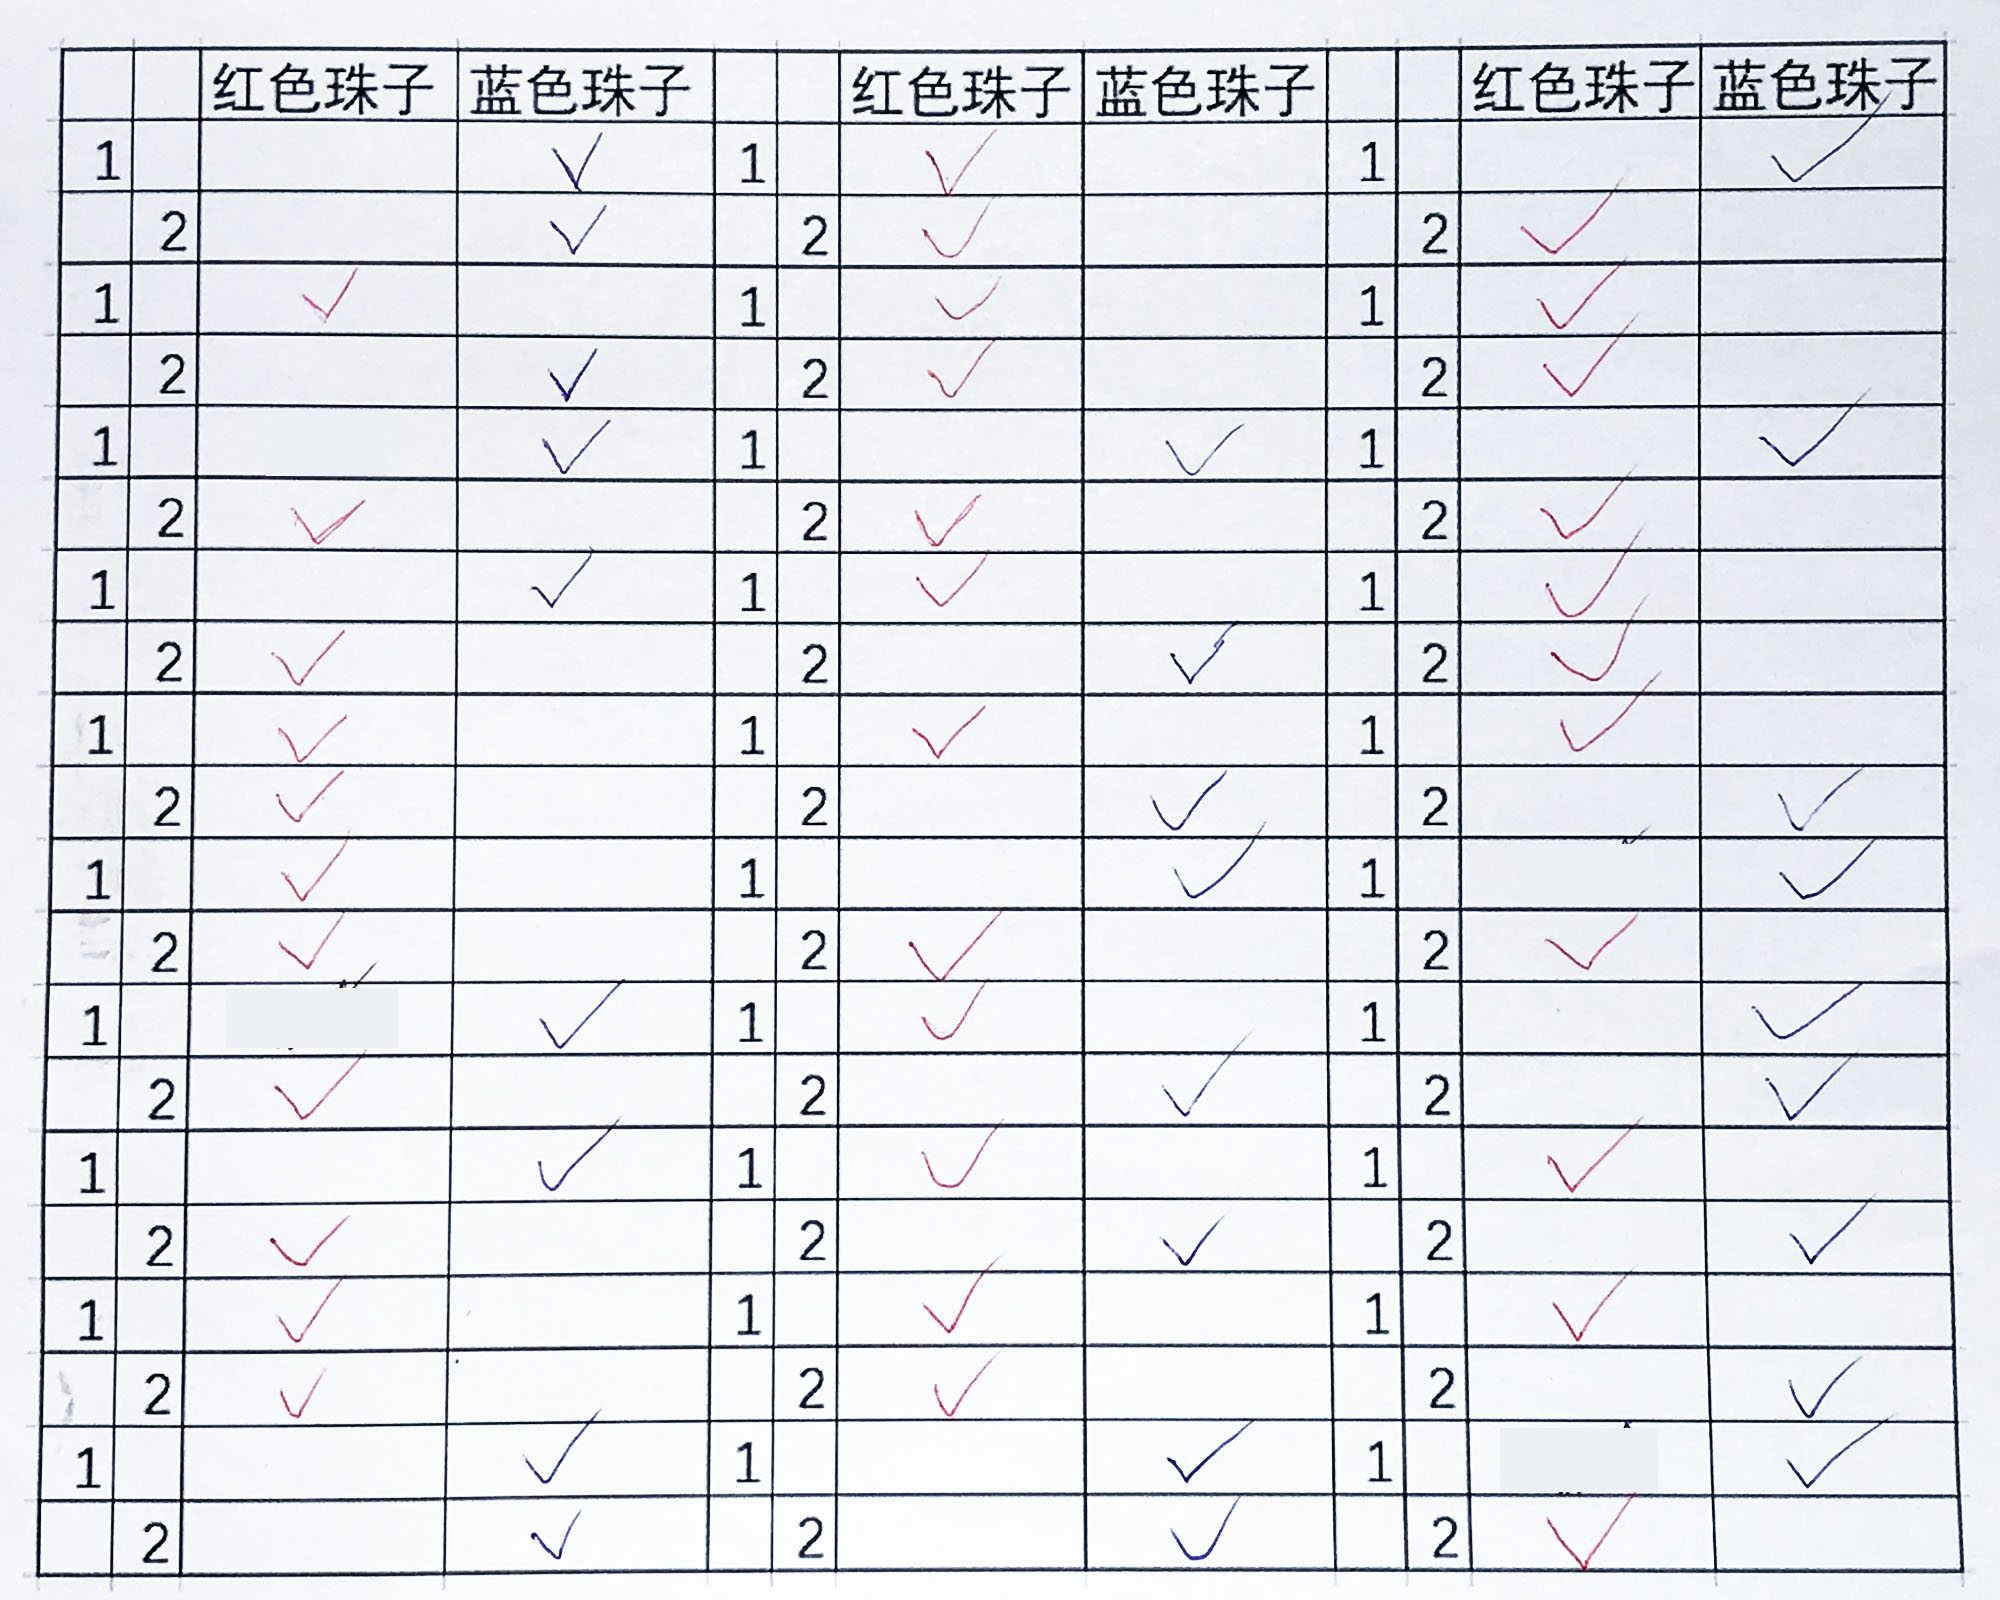 红色珠子 蓝色珠子 红色珠子 蓝色珠子 红色珠子 蓝色珠子
1 ✓ 1 ✓ 1 ✓
2 ✓ 2 ✓ 2 ✓
1 ✓ 1 ✓ 1 ✓
2 ✓ 2 ✓ 2 ✓
1 ✓ 1 ✓ 1 ✓
2 ✓ 2 ✓ 2 ✓
1 ✓ 1 ✓ 1 ✓
2 ✓ 2 ✓ 2 ✓
1 ✓ 1 ✓ 1 ✓
2 ✓ 2 ✓ 2 ✓
1 ✓ 1 ✓ 1 ✓
2 ✓ 2 ✓ 2 ✓
1 ✓ 1 ✓ 1 ✓
2 ✓ 2 ✓ 2 ✓
1 ✓ 1 ✓ 1 ✓
2 ✓ 2 ✓ 2 ✓
1 ✓ 1 ✓ 1 ✓
2 ✓ 2 ✓ 2 ✓
1 ✓ 1 ✓ 1 ✓
2 ✓ 2 ✓ 2 ✓